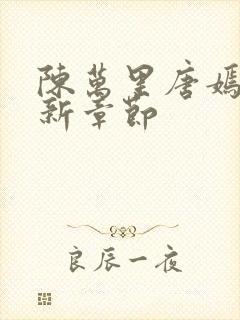 陳萬里唐嫣
新章節
良辰一夜